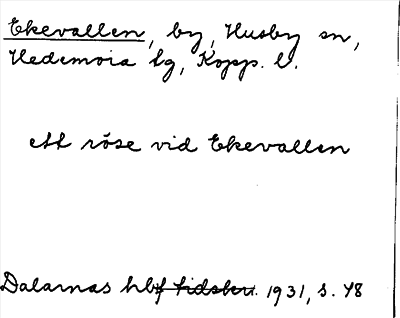 Ekevallen, by, Husby sn,
Hedemora lg, Kopp. l.
ett röse vid Ekevallen
Dalarnas hbf tidskr. 1931, s. 48